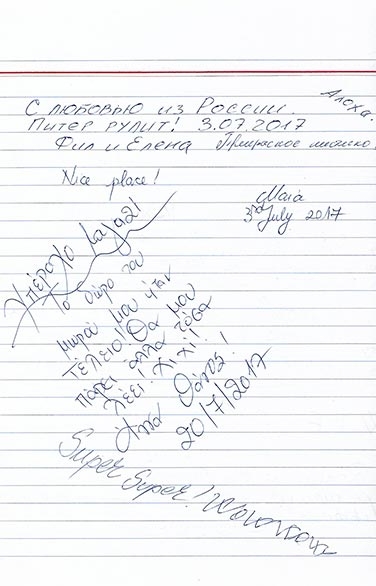 Алоха.
С любовью из России.
Питер рулит! 3.07.2017
Фил и Елена Прекрасное
Nice place!
Maia
3rd July 2017
Υπέροχο μαγαζί
Το δώρο του
μωρού μου ήταν
τέλειο! Θα μου
πάρει αλλα τόσα
λέει! Χι χι!
20/7/2017
Super Super!